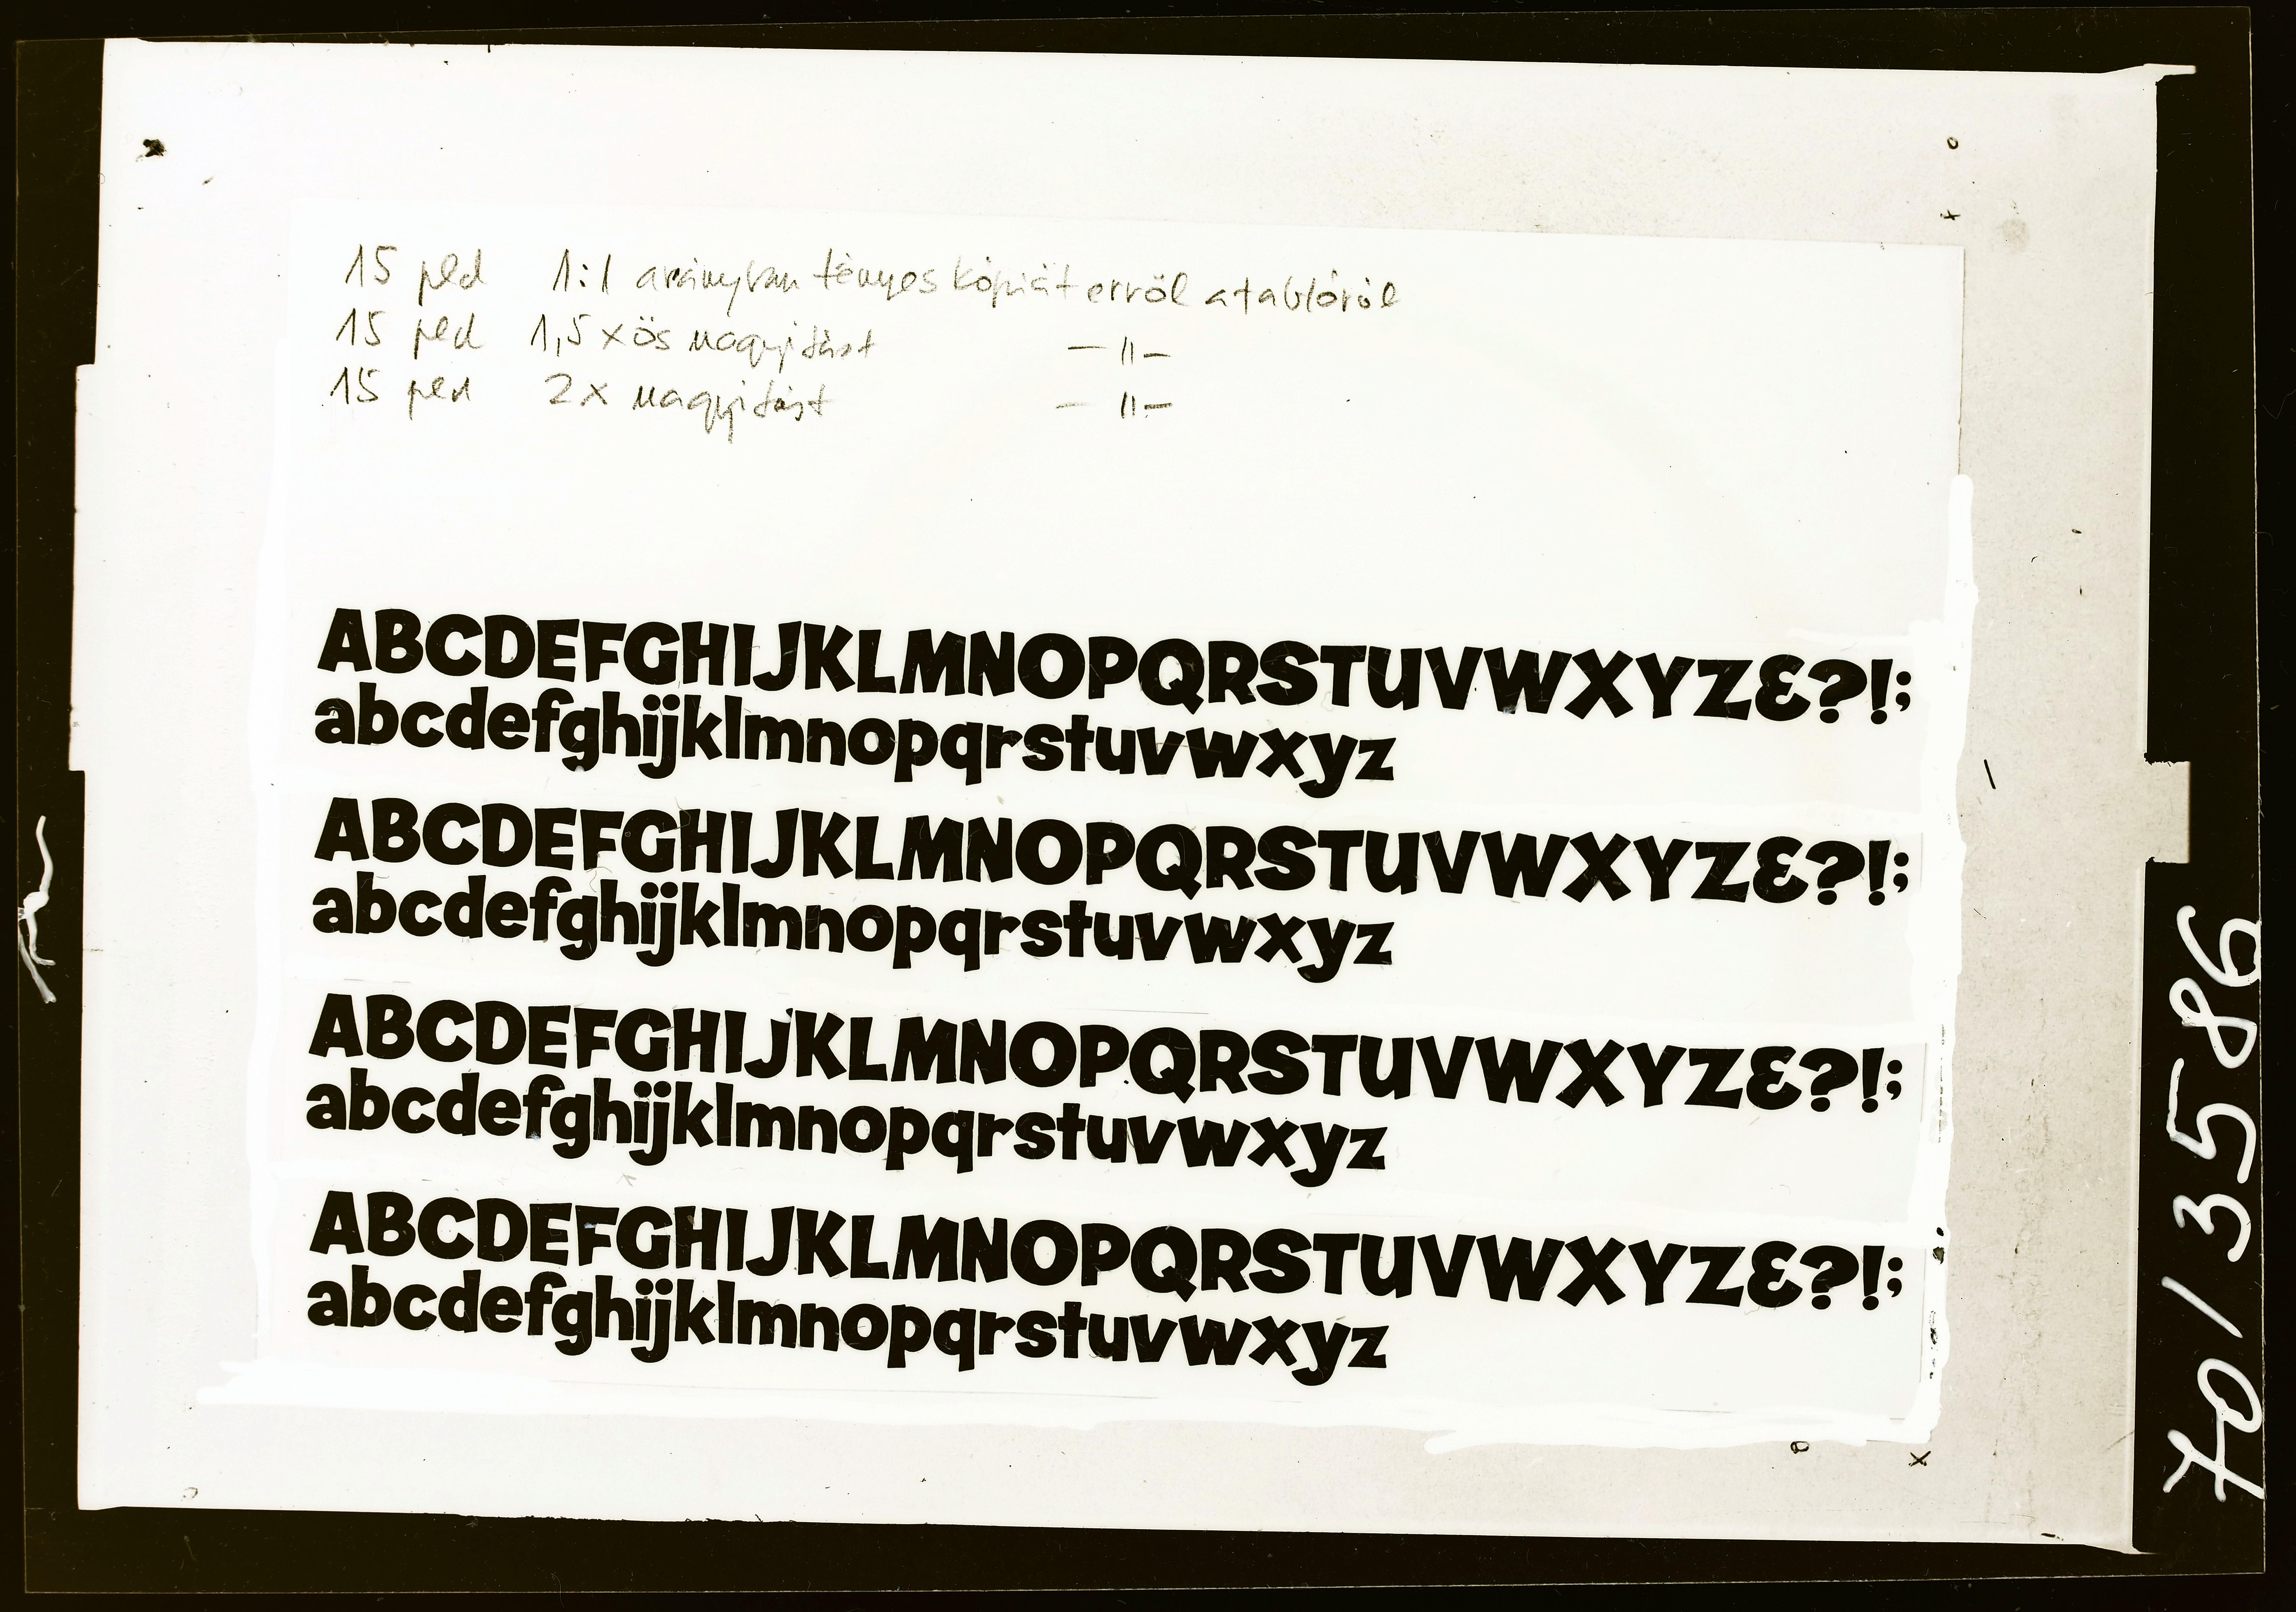 15 pld 1:1 arányban fényes kópiát erről a tablóról
15 pld 1,5 x ös nagyitást — 〃 —
15 pld 2x nagyitást — 〃 —
ABCDEFGHIJKLMNOPQRSTUVWXYZ&?!;
abcdefghijklmnopqrstuvwxyz
ABCDEFGHIJKLMNOPQRSTUVWXYZ&?!;
abcdefghijklmnopqrstuvwxyz
ABCDEFGHIJKLMNOPQRSTUVWXYZ&?!;
abcdefghijklmnopqrstuvwxyz
ABCDEFGHIJKLMNOPQRSTUVWXYZ&?!;
abcdefghijklmnopqrstuvwxyz
70/3586